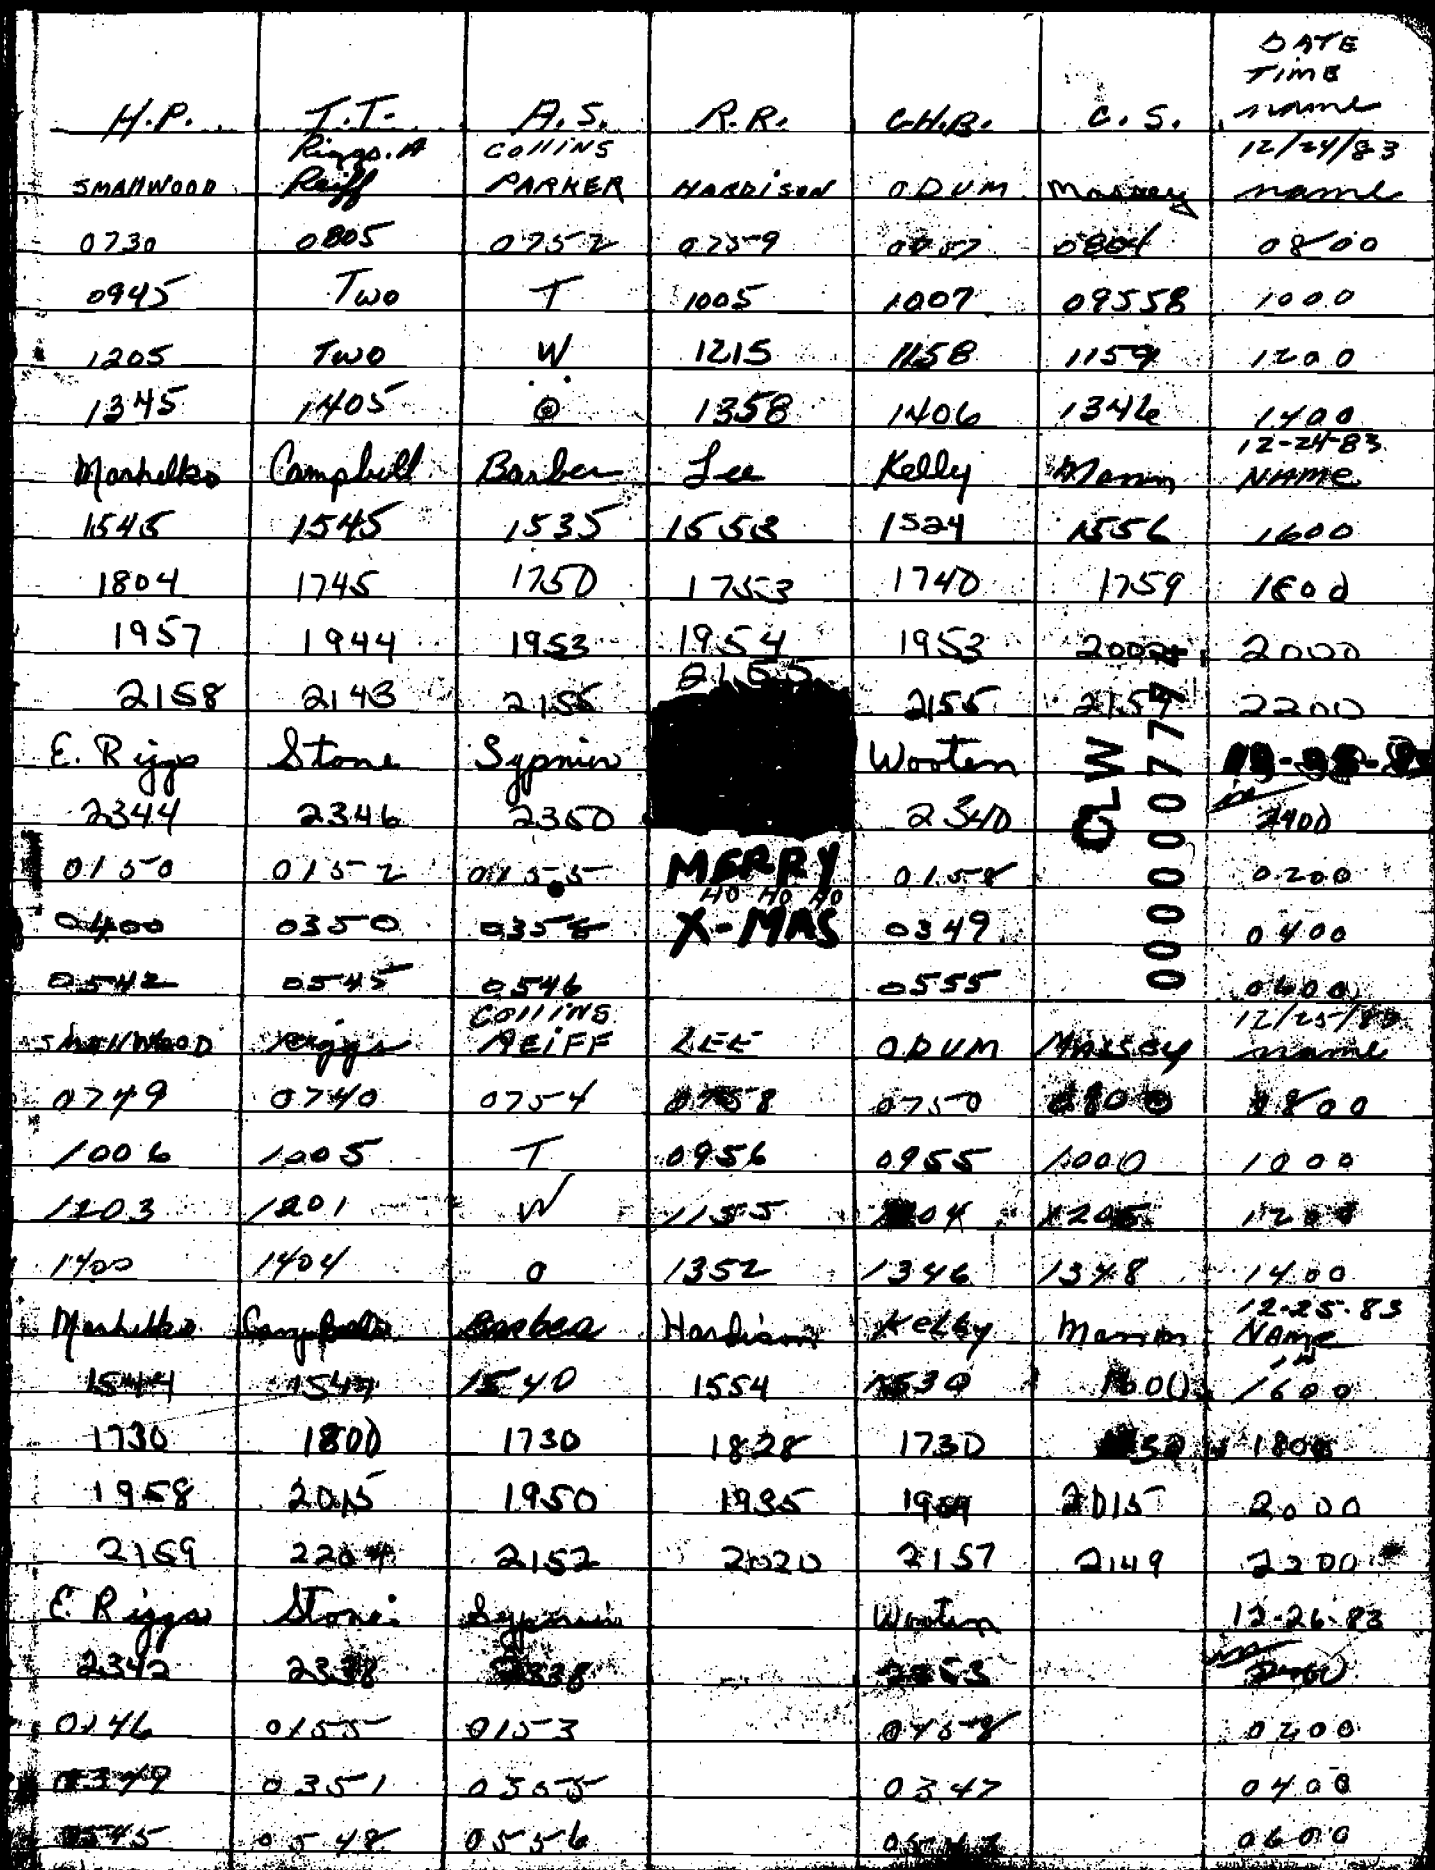 DATE
TIME
H.P. T.T. A.S. R.R. C.H.B. C.S. name
Riggs. A Collins 12/24/83
SMAllWOOD Reiff PARKER HARDISON ODUM Massey name
0730 0805 0752 0759 0757 0804 0800
0945 Two T 1005 1007 09558 1000
1205 Two W 1215 1158 1159 1200
1345 1405 O 1358 1406 1346 1400
12-24-83
Marhelko Campbell Barber Lee Kelly Mann NAME
1545 1545 1535 1553 1524 1556 1600
1804 1745 1750 1753 1740 1759 1800
1957 1944 1953 1954 1953 2002 2000
2158 2143 2155 2155 2155 2157 2200
E. Riggs Stone Sypniew Wooten
2344 2346 2350 2340 2400
0150 0152 0155 MERRY 0158 0200
HO HO HO
0400 0350 0355 X-MAS 0349 0400
0542 0545 0546 0555 0600
CLW
Collins 12/25/83
SMAllWOOD Riggs REIFF LEE ODUM Massey name
0749 0740 0754 0758 0750 0800 0800
1006 1005 T 0956 0955 1000 1000
1203 1201 W 1155 1204 1205 1200
1400 1404 O 1352 1346 1348 1400
12-25-83
Marhelko Campbell Barber Hardison Kelby Mann NAME
1544 1547 1540 1554 1530 1600 1600
1730 1800 1730 1828 1730 1800
1958 2015 1950 1935 1959 2015 2000
2159 2204 2152 2020 2157 2149 2200
E. Riggs Stone Sypniew Wooten 12-26-83
2342 2338 2338 2353
0146 0155 0153 0158 0200
0349 0351 0355 0347 0400
0545 0548 0556 0600